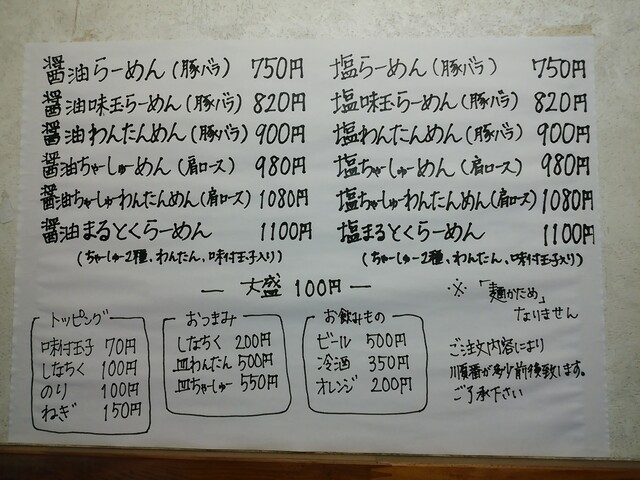 醤油らーめん(豚バラ) 750円
醤油味玉らーめん(豚バラ) 820円
醤油わんたんめん(豚バラ) 900円
醤油ちゃーしゅーめん(肩ロース) 980円
醤油ちゃーしゅーわんたんめん(肩ロース) 1080円
醤油まるとくらーめん 1100円
(ちゃーしゅー2種、わんたん、味付玉子入り)
塩らーめん(豚バラ) 750円
塩味玉らーめん(豚バラ) 820円
塩わんたんめん(豚バラ) 900円
塩ちゃーしゅーめん(肩ロース) 980円
塩ちゃーしゅーわんたんめん(肩ロース) 1080円
塩まるとくらーめん 1100円
(ちゃーしゅー2種、わんたん、味付玉子入り)
— 大盛 100円 —
トッピング
味付玉子 70円
しなちく 100円
のり 100円
ねぎ 150円
おつまみ
しなちく 200円
皿わんたん 500円
皿ちゃーしゅー 550円
お飲みもの
ビール 500円
冷酒 350円
オレンジ 200円
※「麺かため」
なりません
ご注文内容により
順番が多少前後致します。
ご了承下さい